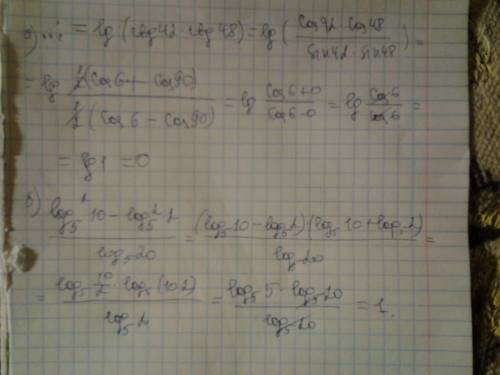 а) ... = lg (ctg 42 · ctg 48) = lg ( cos 42 · cos 48 / sin 42 · sin 48 ) =
= lg ½ (cos 6 + cos 90) / ½ (cos 6 - cos 90) = lg cos 6 + 0 / cos 6 - 0 = lg cos 6 / cos 6 =
= lg 1 = 0
б) log₅² 10 - log₅² 2 / log₅ 20 = (log₅ 10 - log₅ 2) (log₅ 10 + log₅ 2) / log 20 =
= log₅ 10/2 · log₅ (10·2) / log₅ 2 = log₅ 5 · log₅ 20 / log₅ 20 = 1.